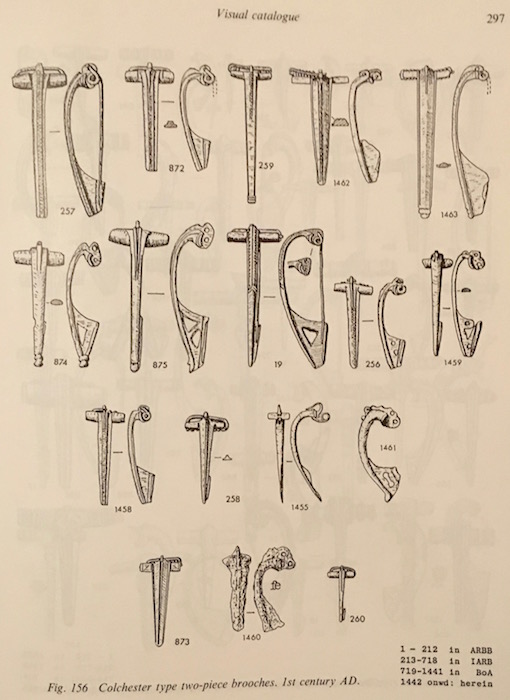 Visual catalogue
297
257
872
259
1462
1463
874
875
19
256
1459
1458
258
1455
1461
873
1460
260
1 - 212 in ARBB
213-718 in IARB
719-1441 in BoA
1442 onwd: herein
Fig. 156 Colchester type two-piece brooches. 1st century AD.